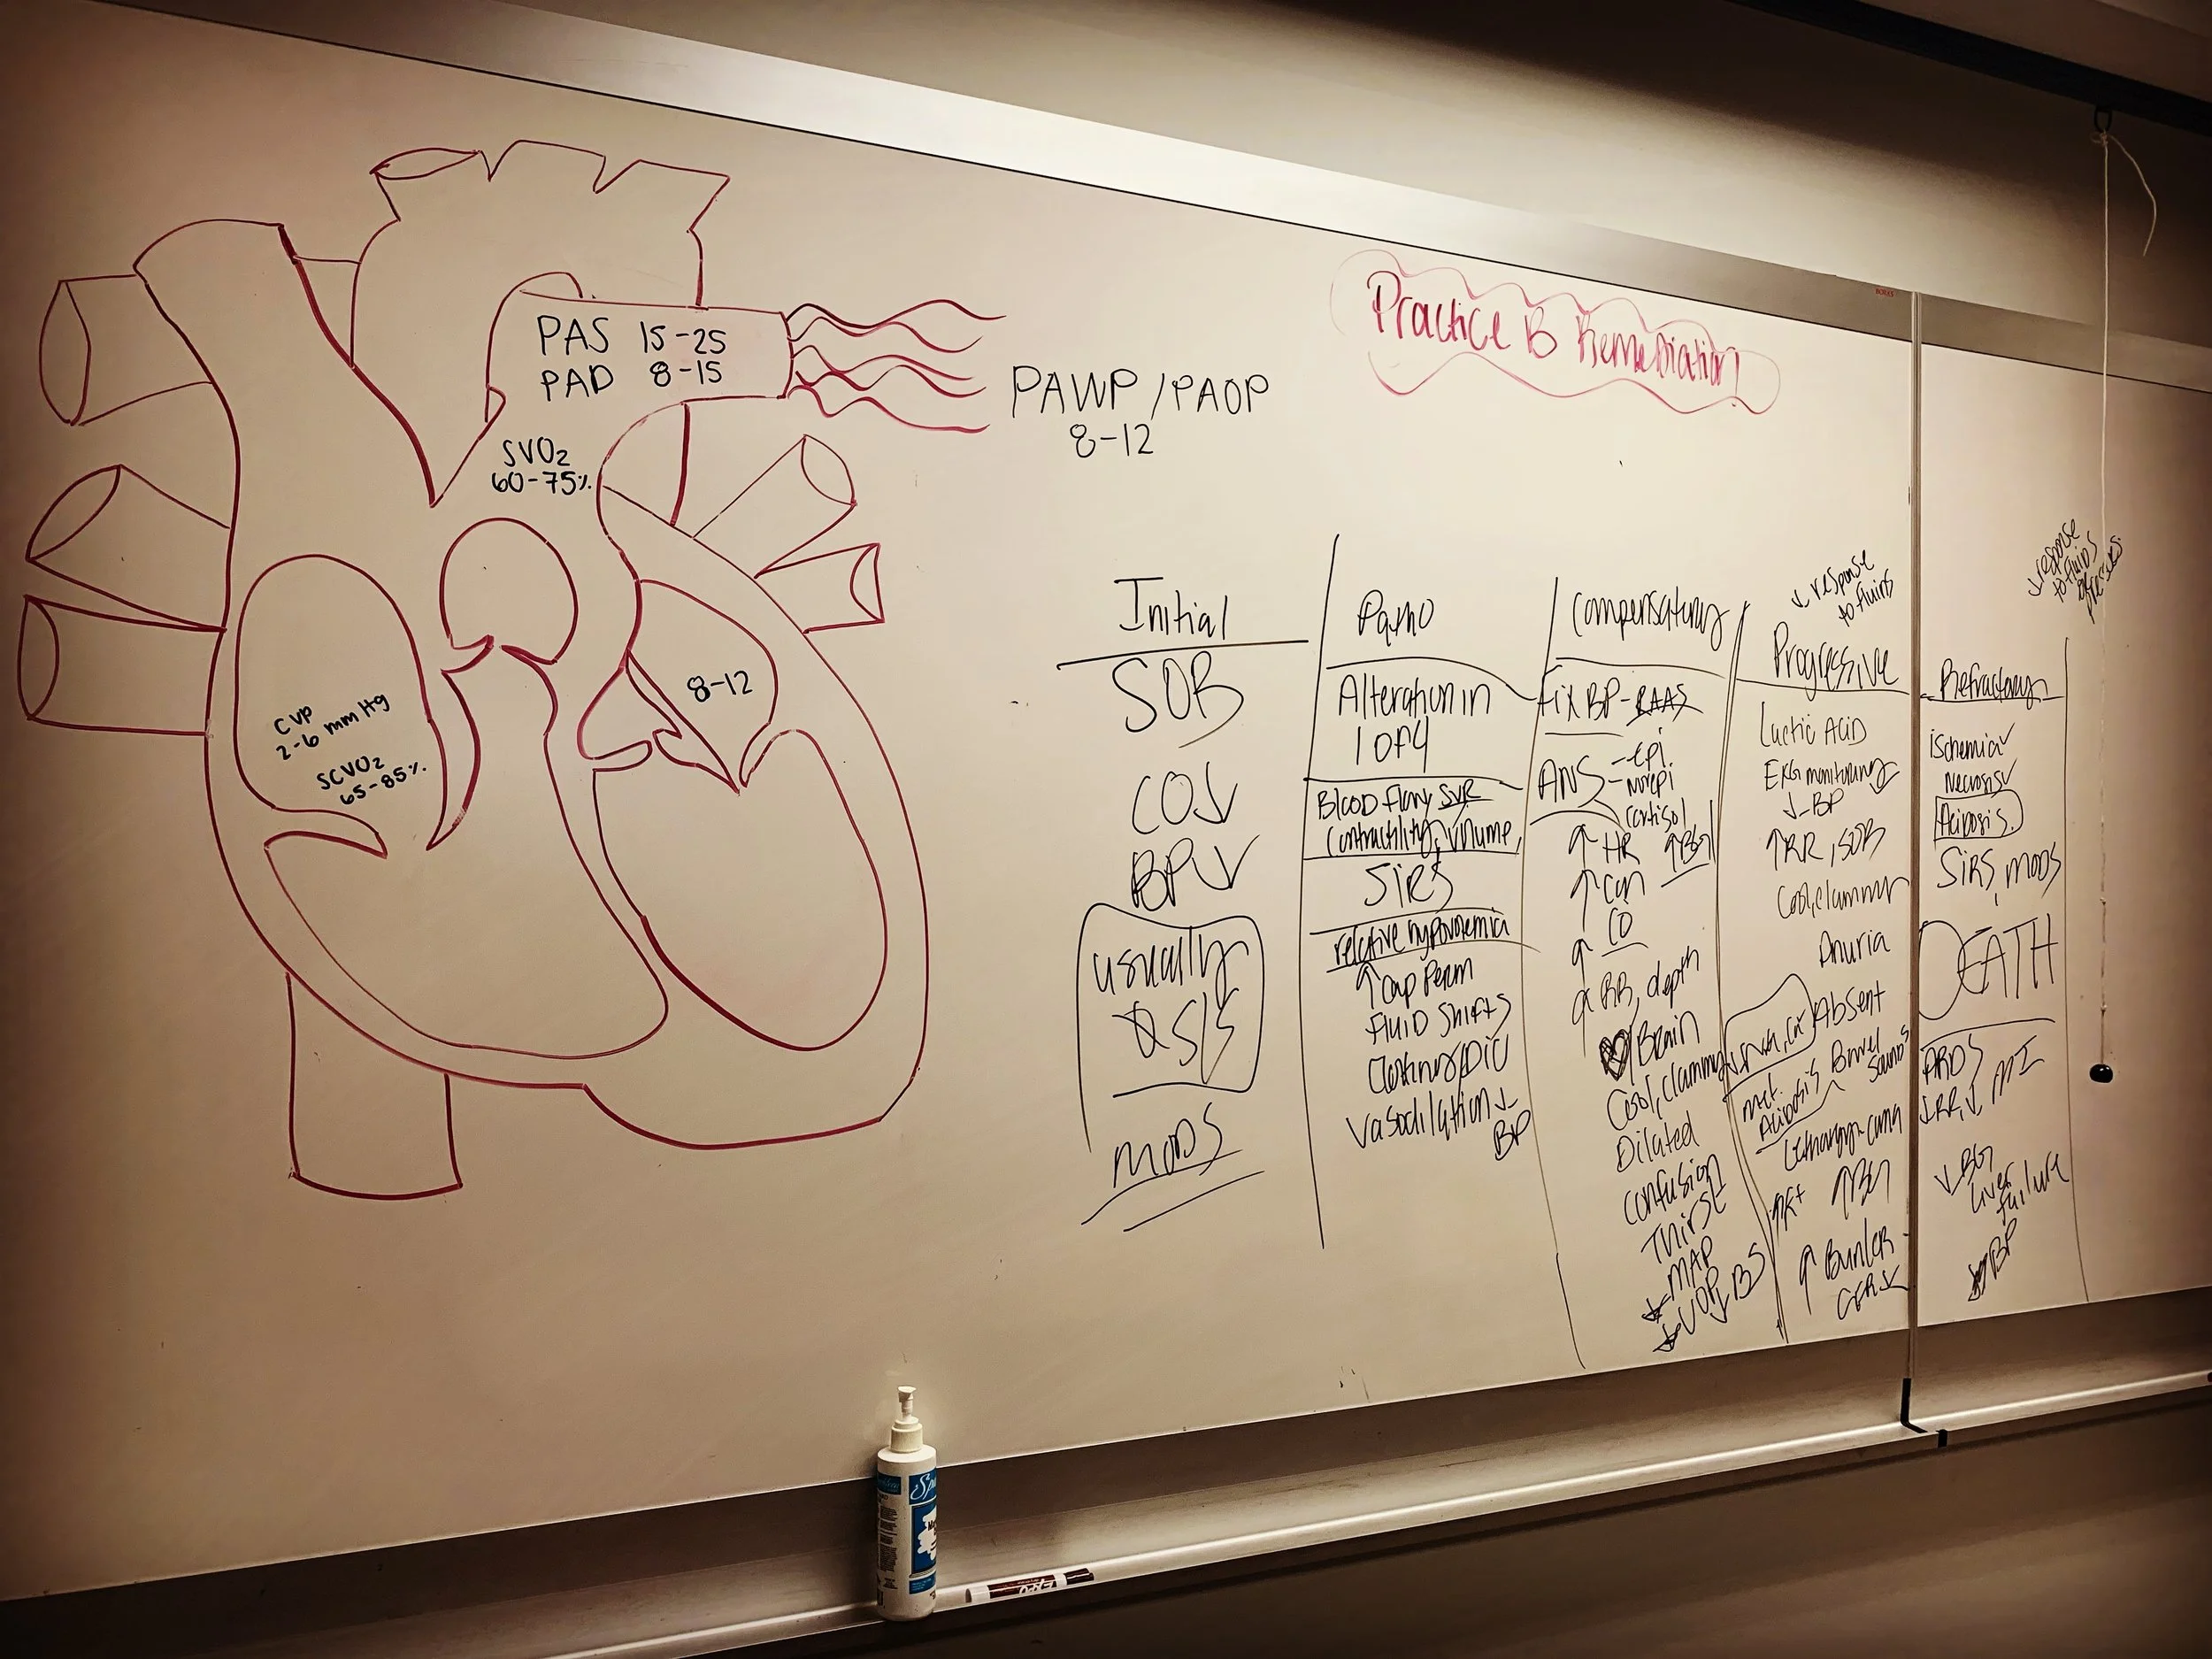 PAS 15-25
PAD 8-15
SVO₂
60-75%
PAWP/PAOP
8-12
8-12
CVP
2-6 mmHg
SCVO₂
65-85%
Practice B Remediation
Initial
SOB
CO↓
BP↓
usually
S/S
MODS
Patho
Alteration in
1 of 4
Blood flow, SVR
Contractility, Volume,
SIRS
relative hypovolemia
↑ Cap Perm
Fluid Shifts
Clotting/DIC
Vasodilation ↓
BP
Compensatory
Fix BP - RAAS
ANS - epi
- norepi
Cortisol
↑ HR ↑BG
↑ Con
↑ CO
↑ RR, depth
Brain
Cool, clammy
Dilated
Confusion
Thirst
↓ MAP
↓ UOP ↓ BS
↓ response
to fluids
Progressive
Lactic Acid
EKG monitoring
↓ BP
↑RR, SOB
Cool, clammy
Anuria
Absent
Bowel
Sounds
Met.
Acidosis
Lethargy-coma
↑K+ ↑BG
↑ Bun/cr
GFR↓
↓ response
to fluids
Refractory
ischemia✓
Necrosis✓
Acidosis
SIRS, MODS
DEATH
ARDS
↓RR, ↓ MI
↓BG
Liver
failure
BP
EXPO